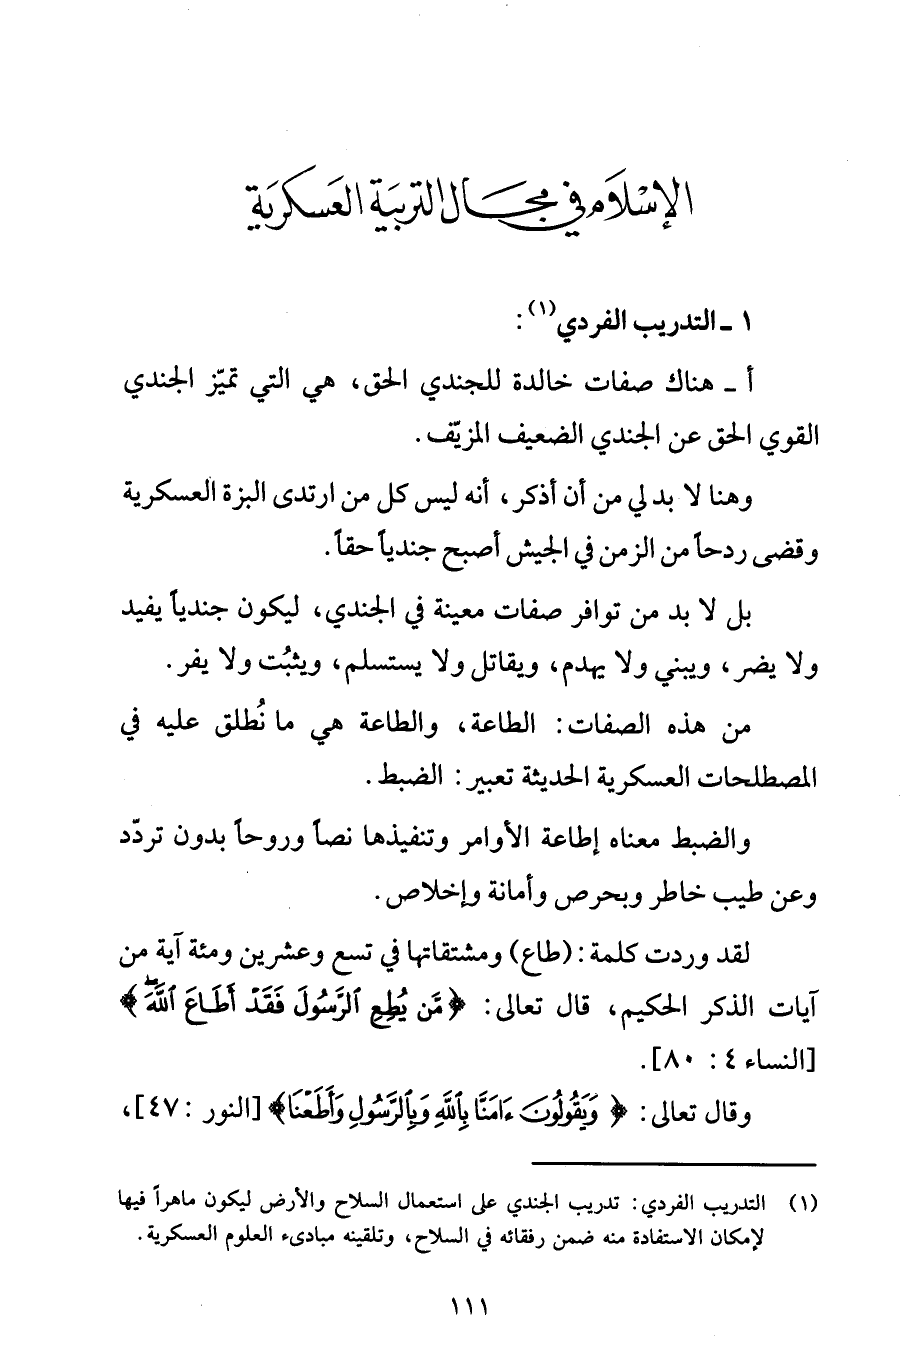 الإسْلَام في مجَال التربيَة العَسكريَة
١ - التدريب الفردي(١) :
أ - هناك صفات خالدة للجندي الحق، هي التي تميّز الجندي
القوي الحق عن الجندي الضعيف المزيّف .
وهنا لا بد لي من أن أذكر، أنه ليس كل من ارتدى البزة العسكرية
وقضى ردحاً من الزمن في الجيش أصبح جندياً حقاً.
بل لا بد من توافر صفات معينة في الجندي، ليكون جندياً يفيد
ولا يضر، ويبني ولا يهدم، ويقاتل ولا يستسلم، ويثبُت ولا يفر .
من هذه الصفات: الطاعة، والطاعة هي ما نُطلق عليه في
المصطلحات العسكرية الحديثة تعبير : الضبط .
والضبط معناه إطاعة الأوامر وتنفيذها نصاً وروحاً بدون تردّد
وعن طيب خاطر وبحرص وأمانة وإخلاص .
لقد وردت كلمة : (طاع) ومشتقاتها في تسع وعشرين ومئة آية من
آيات الذكر الحكيم، قال تعالى : ﴿ مَّن يُطِعِ ٱلرَّسُولَ فَقَدْ أَطَاعَ ٱللَّهَۖ ﴾
[النساء ٤ : ٨٠].
وقال تعالى : ﴿ وَيَقُولُونَ ءَامَنَّا بِٱللَّهِ وَبِٱلرَّسُولِ وَأَطَعْنَا﴾ [النور : ٤٧]،
(١) التدريب الفردي : تدريب الجندي على استعمال السلاح والأرض ليكون ماهراً فيها
لإمكان الاستفادة منه ضمن رفقائه في السلاح، وتلقينه مبادىء العلوم العسكرية .
١١١